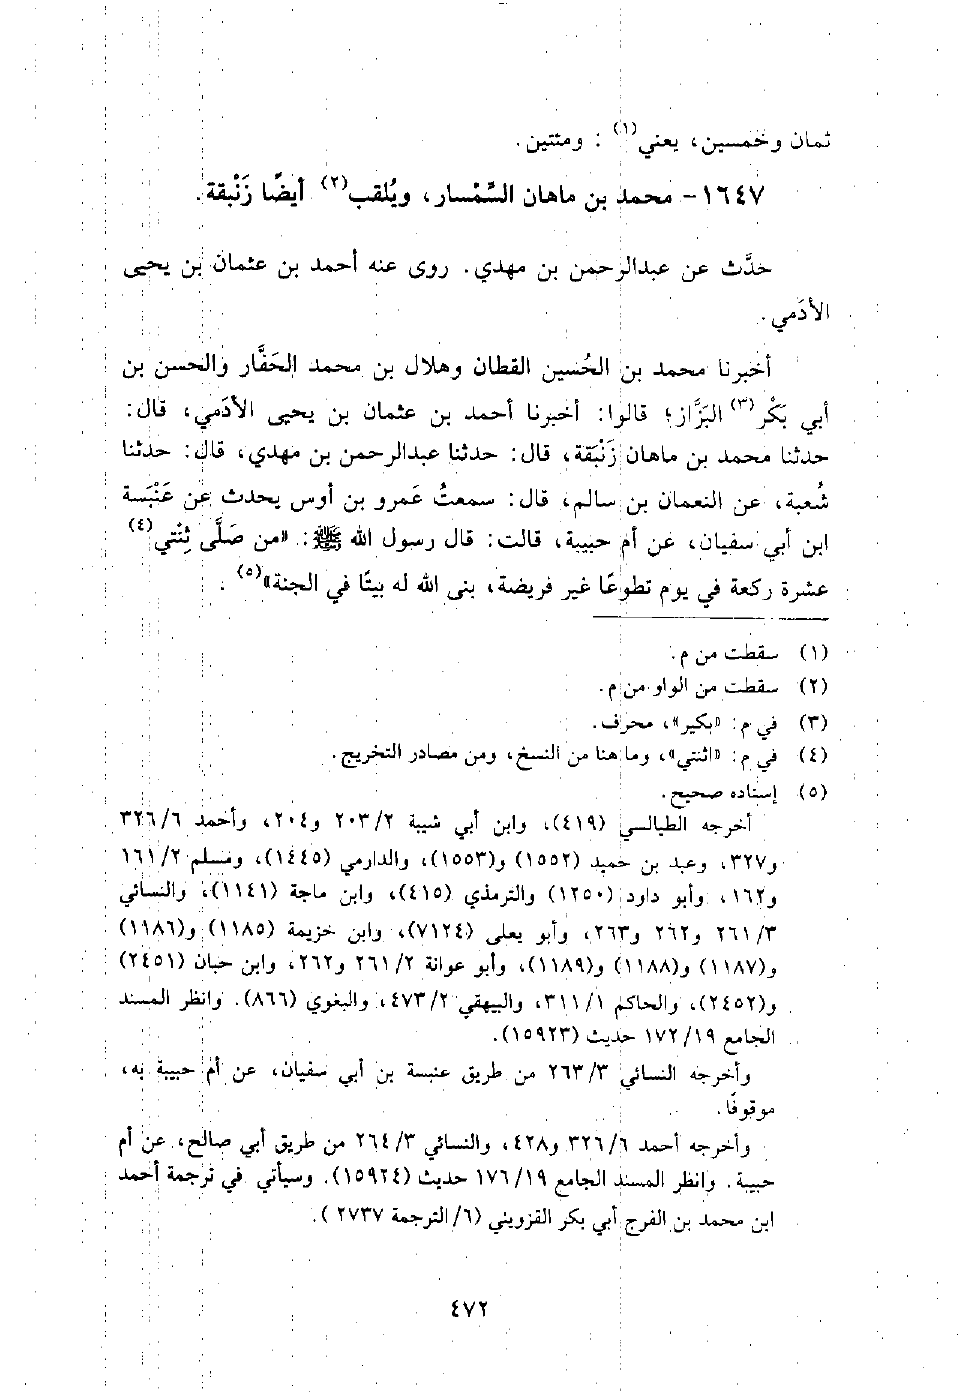 ثمان وخمسين، يعني(١) : ومئتين.
١٦٤٧- محمد بن ماهان السِّمْسار، ويُلقب(٢) أيضًا زَنْبقة.
حدَّث عن عبدالرحمن بن مهدي. روى عنه أحمد بن عثمان بن يحيى
الأدَمي.
أخبرنا محمد بن الحُسين القطان وهلال بن محمد الحَفَّار والحسن بن
أبي بَكْر(٣) البَزَّاز؛ قالوا: أخبرنا أحمد بن عثمان بن يحيى الأدَمي، قال:
حدثنا محمد بن ماهان زَنْبَقة، قال: حدثنا عبدالرحمن بن مهدي، قال: حدثنا
شُعبة، عن النعمان بن سالم، قال: سمعتُ عَمرو بن أوس يحدث عن عَنْبَسة
ابن أبي سفيان، عن أم حبيبة، قالت: قال رسول الله ﷺ: «من صَلَّى ثِنْتي(٤)
عشرة ركعة في يوم تطوعًا غير فريضة، بنى الله له بيتًا في الجنة»(٥) .
(١) سقطت من م.
(٢) سقطت من الواو من م.
(٣) في م: «بكير»، محرف.
(٤) في م: «اثنتي»، وما هنا من النسخ، ومن مصادر التخريج.
(٥) إسناده صحيح.
أخرجه الطيالسي (٤١٩)، وابن أبي شيبة ٢/ ٢٠٣ و٢٠٤، وأحمد ٦/ ٣٢٦
و٣٢٧، وعبد بن حميد (١٥٥٢) و(١٥٥٣)، والدارمي (١٤٤٥)، ومسلم ٢/ ١٦١
و١٦٢، وأبو داود (١٢٥٠) والترمذي (٤١٥)، وابن ماجة (١١٤١)، والنسائي
٣/ ٢٦١ و٢٦٢ و٢٦٣، وأبو يعلى (٧١٢٤)، وابن خزيمة (١١٨٥) و(١١٨٦)
و(١١٨٧) و(١١٨٨) و(١١٨٩)، وأبو عوانة ٢/ ٢٦١ و٢٦٢، وابن حبان (٢٤٥١)
و(٢٤٥٢)، والحاكم ١/ ٣١١، والبيهقي ٢/ ٤٧٣، والبغوي (٨٦٦). وانظر المسند
الجامع ١٩/ ١٧٢ حديث (١٥٩٢٣).
وأخرجه النسائي ٣/ ٢٦٣ من طريق عنبسة بن أبي سفيان، عن أم حبيبة به،
موقوفًا.
وأخرجه أحمد ٦/ ٣٢٦ و٤٢٨، والنسائي ٣/ ٢٦٤ من طريق أبي صالح، عن أم
حبيبة. وانظر المسند الجامع ١٩/ ١٧٦ حديث (١٥٩٢٤). وسيأتي في ترجمة أحمد
ابن محمد بن الفرج أبي بكر القزويني (٦/ الترجمة ٢٧٣٧ ).
٤٧٢